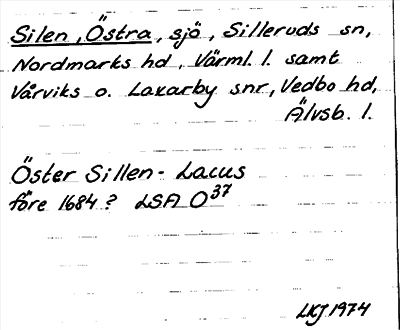 Silen, Östra, sjö, Silleruds sn,
Nordmarks hd, Värml. l. samt
Vårviks o. Laxarby snr, Vedbo hd,
Älvsb. l.
Öster Sillen - Lacus
före 1684? LSA O³⁷
LKJ 1974